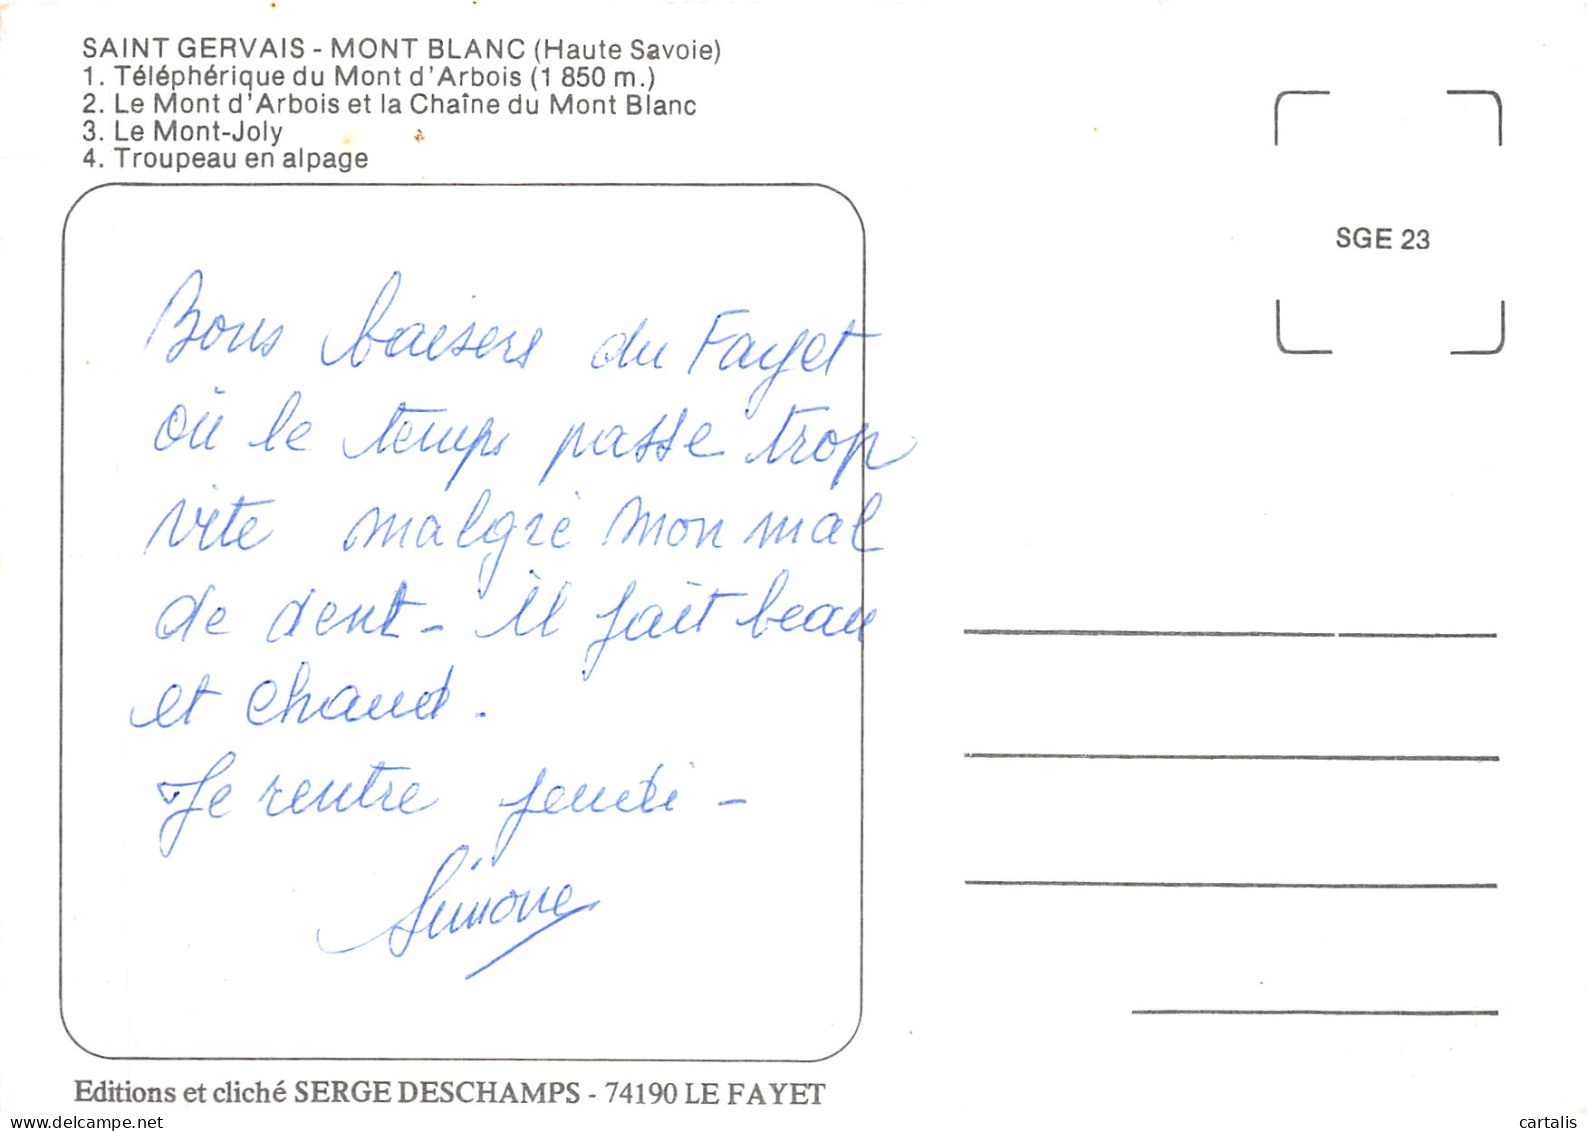 SAINT GERVAIS - MONT BLANC (Haute Savoie)
1. Téléphérique du Mont d'Arbois (1 850 m.)
2. Le Mont d'Arbois et la Chaîne du Mont Blanc
3. Le Mont-Joly
4. Troupeau en alpage
SGE 23
Bons baisers du Fayet
où le temps passe trop
vite malgré mon mal
de dent - il fait beau
et chaud.
Je rentre jeudi -
Simone
Editions et cliché SERGE DESCHAMPS - 74190 LE FAYET
delcampe.net
cartalis